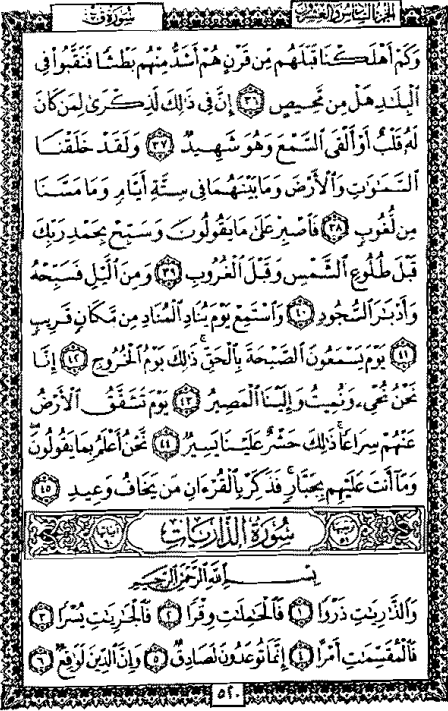 سُورَةُ قٓ الجزء السادس والعشرون
وَكَمْ أَهْلَكْنَا قَبْلَهُم مِّن قَرْنٍ هُمْ أَشَدُّ مِنْهُم بَطْشًا فَنَقَّبُوا۟ فِى
ٱلْبِلَـٰدِ هَلْ مِن مَّحِيصٍ ٣٦ إِنَّ فِى ذَٰلِكَ لَذِكْرَىٰ لِمَن كَانَ
لَهُۥ قَلْبٌ أَوْ أَلْقَى ٱلسَّمْعَ وَهُوَ شَهِيدٌ ٣٧ وَلَقَدْ خَلَقْنَا
ٱلسَّمَـٰوَٰتِ وَٱلْأَرْضَ وَمَا بَيْنَهُمَا فِى سِتَّةِ أَيَّامٍ وَمَا مَسَّنَا
مِن لُّغُوبٍ ٣٨ فَٱصْبِرْ عَلَىٰ مَا يَقُولُونَ وَسَبِّحْ بِحَمْدِ رَبِّكَ
قَبْلَ طُلُوعِ ٱلشَّمْسِ وَقَبْلَ ٱلْغُرُوبِ ٣٩ وَمِنَ ٱلَّيْلِ فَسَبِّحْهُ
وَأَدْبَـٰرَ ٱلسُّجُودِ ٤٠ وَٱسْتَمِعْ يَوْمَ يُنَادِ ٱلْمُنَادِ مِن مَّكَانٍ قَرِيبٍ
٤١ يَوْمَ يَسْمَعُونَ ٱلصَّيْحَةَ بِٱلْحَقِّ ۚ ذَٰلِكَ يَوْمُ ٱلْخُرُوجِ ٤٢ إِنَّا
نَحْنُ نُحْىِۦ وَنُمِيتُ وَإِلَيْنَا ٱلْمَصِيرُ ٤٣ يَوْمَ تَشَقَّقُ ٱلْأَرْضُ
عَنْهُمْ سِرَاعًا ۚ ذَٰلِكَ حَشْرٌ عَلَيْنَا يَسِيرٌ ٤٤ نَّحْنُ أَعْلَمُ بِمَا يَقُولُونَ ۖ
وَمَآ أَنتَ عَلَيْهِم بِجَبَّارٍ ۖ فَذَكِّرْ بِٱلْقُرْءَانِ مَن يَخَافُ وَعِيدِ ٤٥
سُورَةُ الذَّارِيَاتِ
بِسْمِ ٱللَّهِ ٱلرَّحْمَـٰنِ ٱلرَّحِيمِ
وَٱلذَّٰرِيَـٰتِ ذَرْوًا ١ فَٱلْحَـٰمِلَـٰتِ وِقْرًا ٢ فَٱلْجَـٰرِيَـٰتِ يُسْرًا ٣
فَٱلْمُقَسِّمَـٰتِ أَمْرًا ٤ إِنَّمَا تُوعَدُونَ لَصَادِقٌ ٥ وَإِنَّ ٱلدِّينَ لَوَٰقِعٌ ٦
٥٢٠